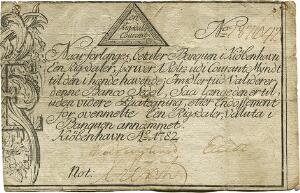 Een
Rigsdaler
Courant.
No.
Naar forlanges, betaler Banquen i Kiöbenhavn
Een Rigsdaler, skriver 1 Rdlr. udi Courant Myndt
til den i hænde havende; imidlertid Validerer
denne Banco Zedel, Saa længe den er til,
uden videre Opategning, eller Endossement
for ovenmelte Een Rigsdaler, Valuta i
Banquen annammet.
Kiöbenhavn Ao. 1782
Not.